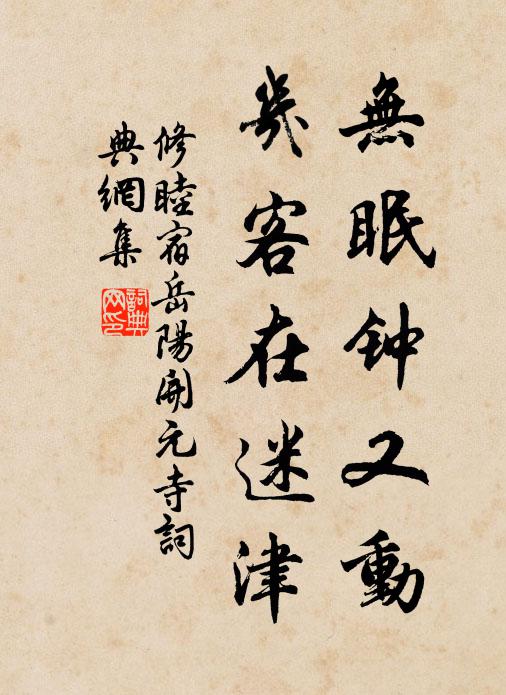 無眠钟又動
幾客在迷津
修睦宿岳陽開元寺詞
典網集
詞典
网印